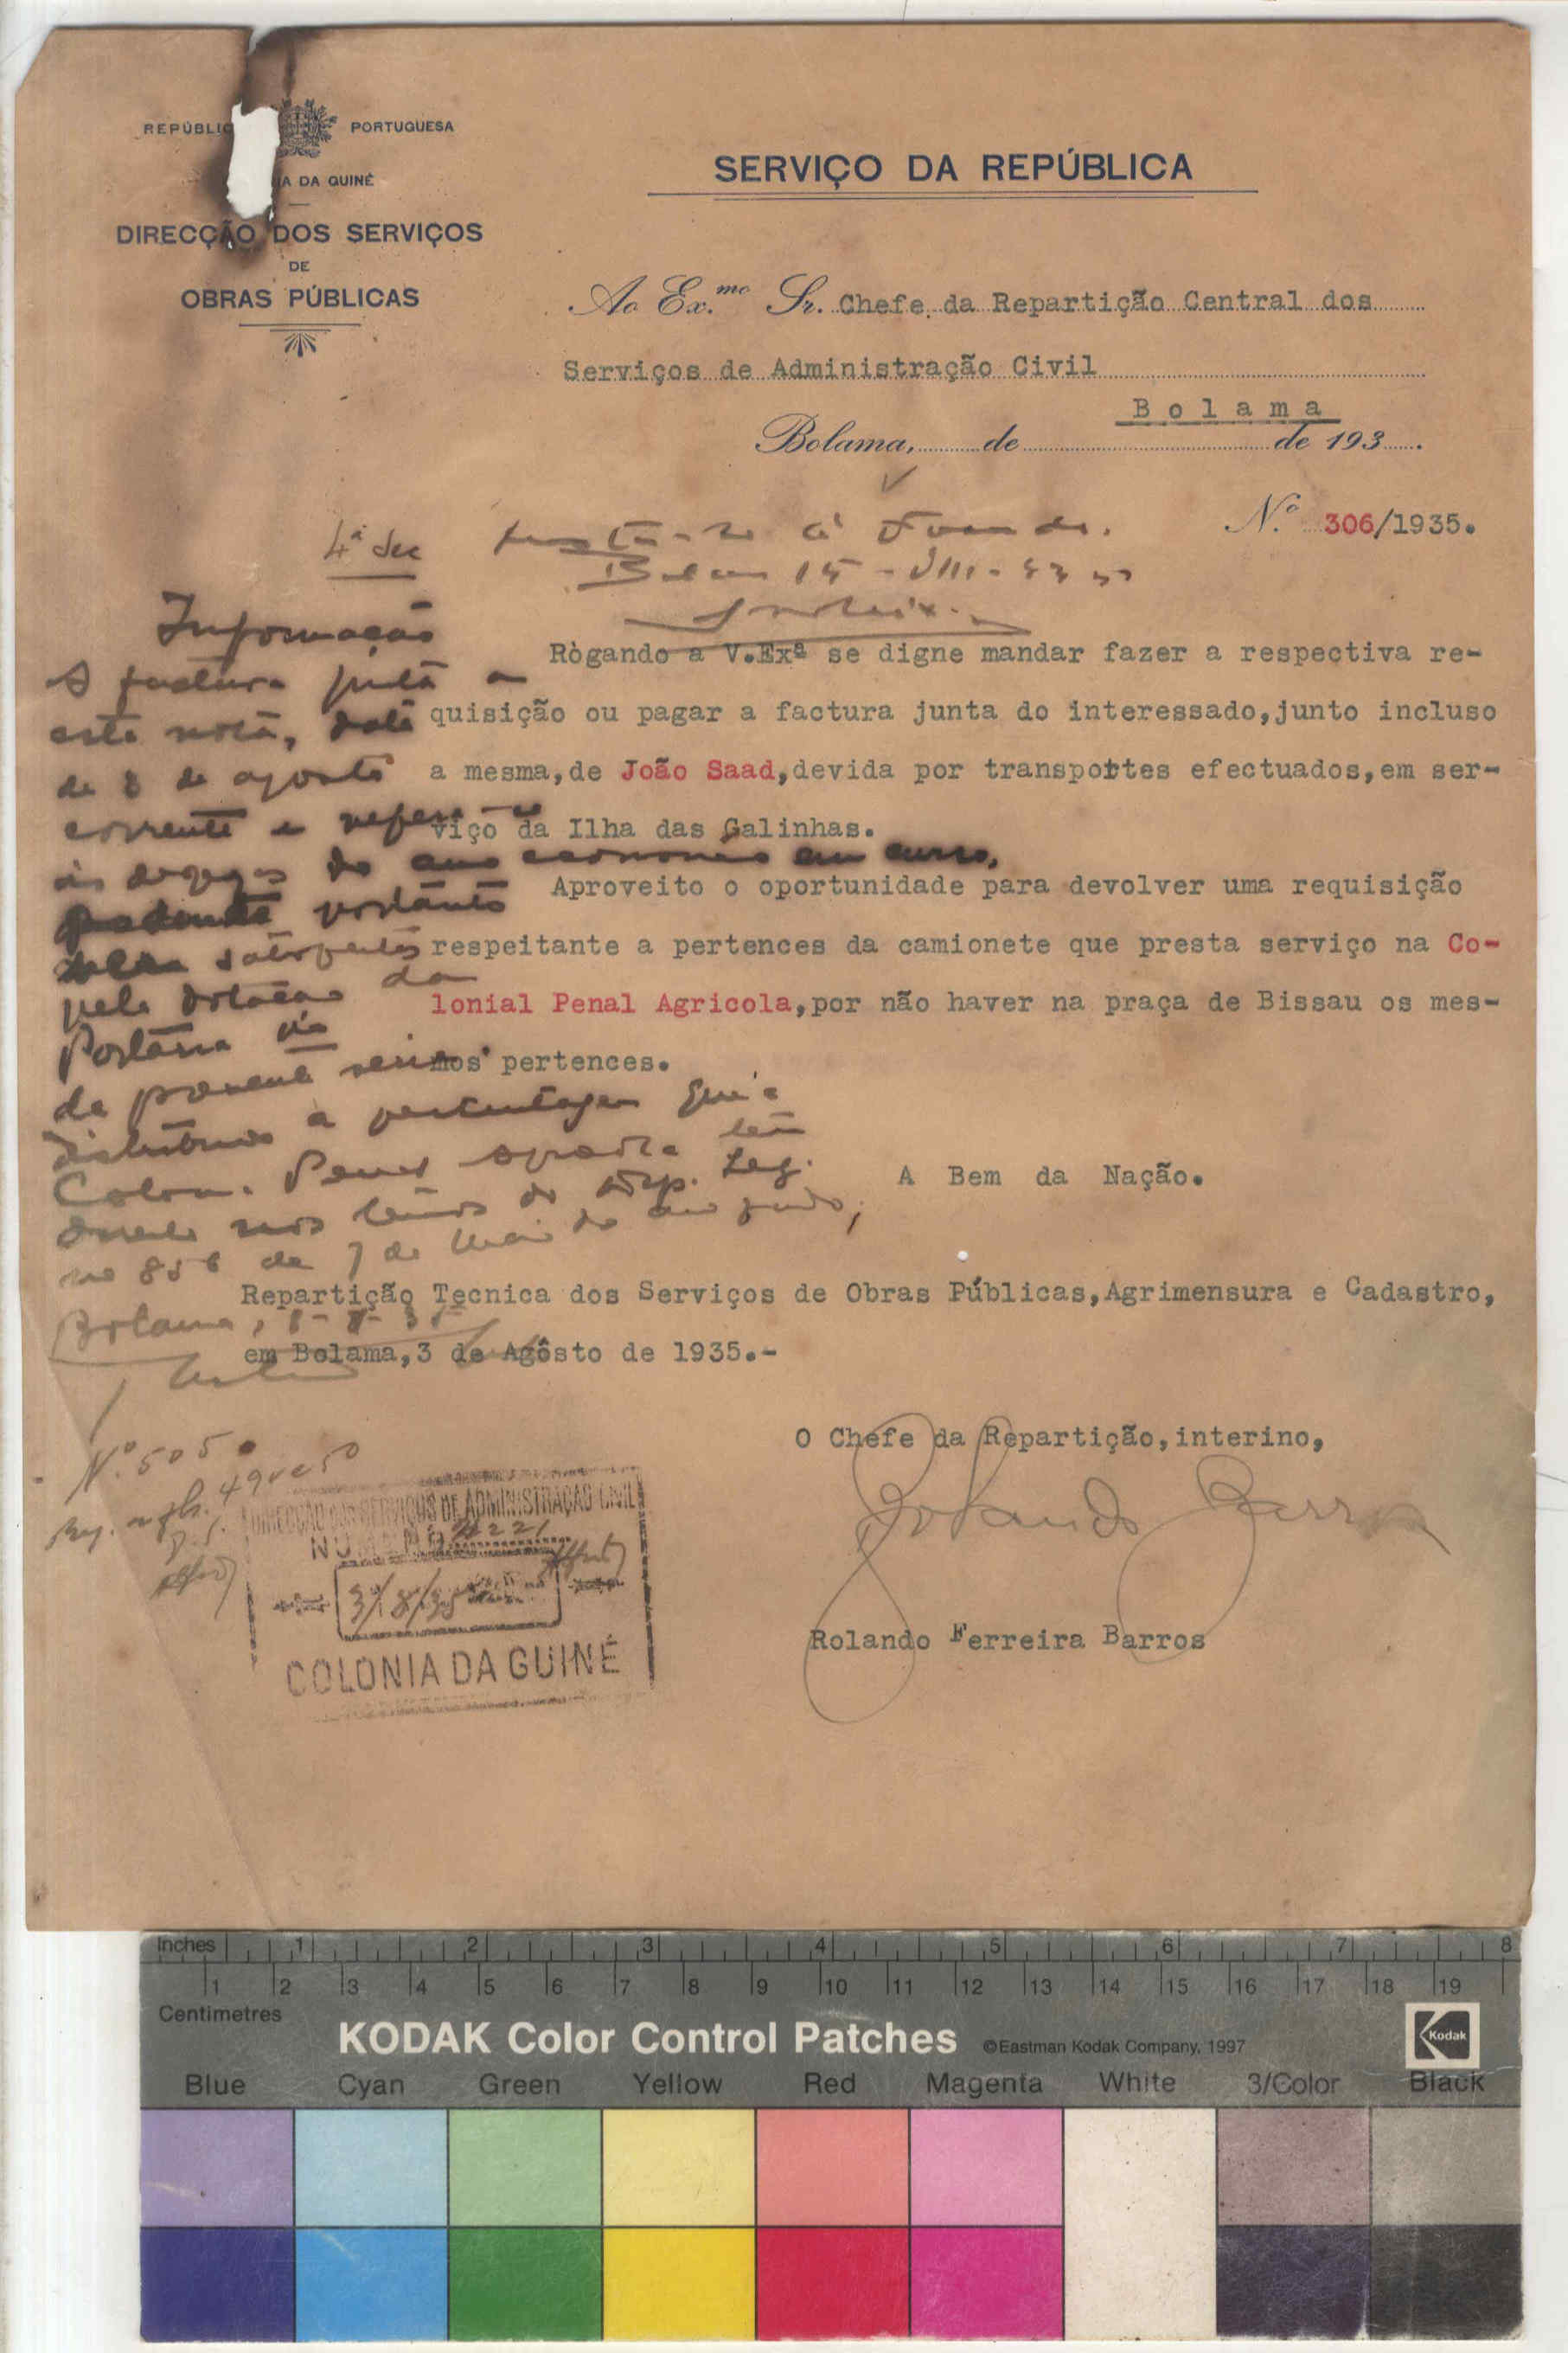 REPÚBLIC PORTUGUESA
A DA GUINÉ
DIRECÇÃO DOS SERVIÇOS
DE
OBRAS PÚBLICAS
SERVIÇO DA REPÚBLICA
Ao Ex.mo Sr. Chefe da Repartição Central dos
Serviços de Administração Civil
Bolama
Bolama, de de 193 .
N.º 306/1935.
4ª Sec
Informação
A factura junta a
esta nota, data
de 8 de agosto
corrente e refere-se
às despezas do ano economico em curso,
portanto
satisfeitas
pela dotação da
Portaria
de
distribuir a percentagem que a
Colon. Penal Agricola tem
nos do Dip. Leg.
no 856 de 7 de Maio do ano findo;
Bolama, 8-8-35
Rògando a V.Exª se digne mandar fazer a respectiva re-
quisição ou pagar a factura junta do interessado,junto incluso
a mesma,de João Saad,devida por transportes efectuados,em ser-
viço da Ilha das Galinhas.
Aproveito o oportunidade para devolver uma requisição
respeitante a pertences da camionete que presta serviço na Co-
lonial Penal Agricola,por não haver na praça de Bissau os mes-
mos pertences.
A Bem da Nação.
Repartição Tecnica dos Serviços de Obras Públicas,Agrimensura e Cadastro,
em Bolama,3 de Agôsto de 1935.-
O Chefe da Repartição,interino,
Rolando Barros
Rolando Ferreira Barros
N.º 5050
DIRECÇÃO DOS SERVIÇOS DE ADMINISTRAÇÃO CIVIL
NUMERO 2221
3/8/35
COLONIA DA GUINÉ
Inches 1 2 3 4 5 6 7 8
1 2 3 4 5 6 7 8 9 10 11 12 13 14 15 16 17 18 19
Centimetres
KODAK Color Control Patches ©Eastman Kodak Company, 1997 Kodak
Blue Cyan Green Yellow Red Magenta White 3/Color Black